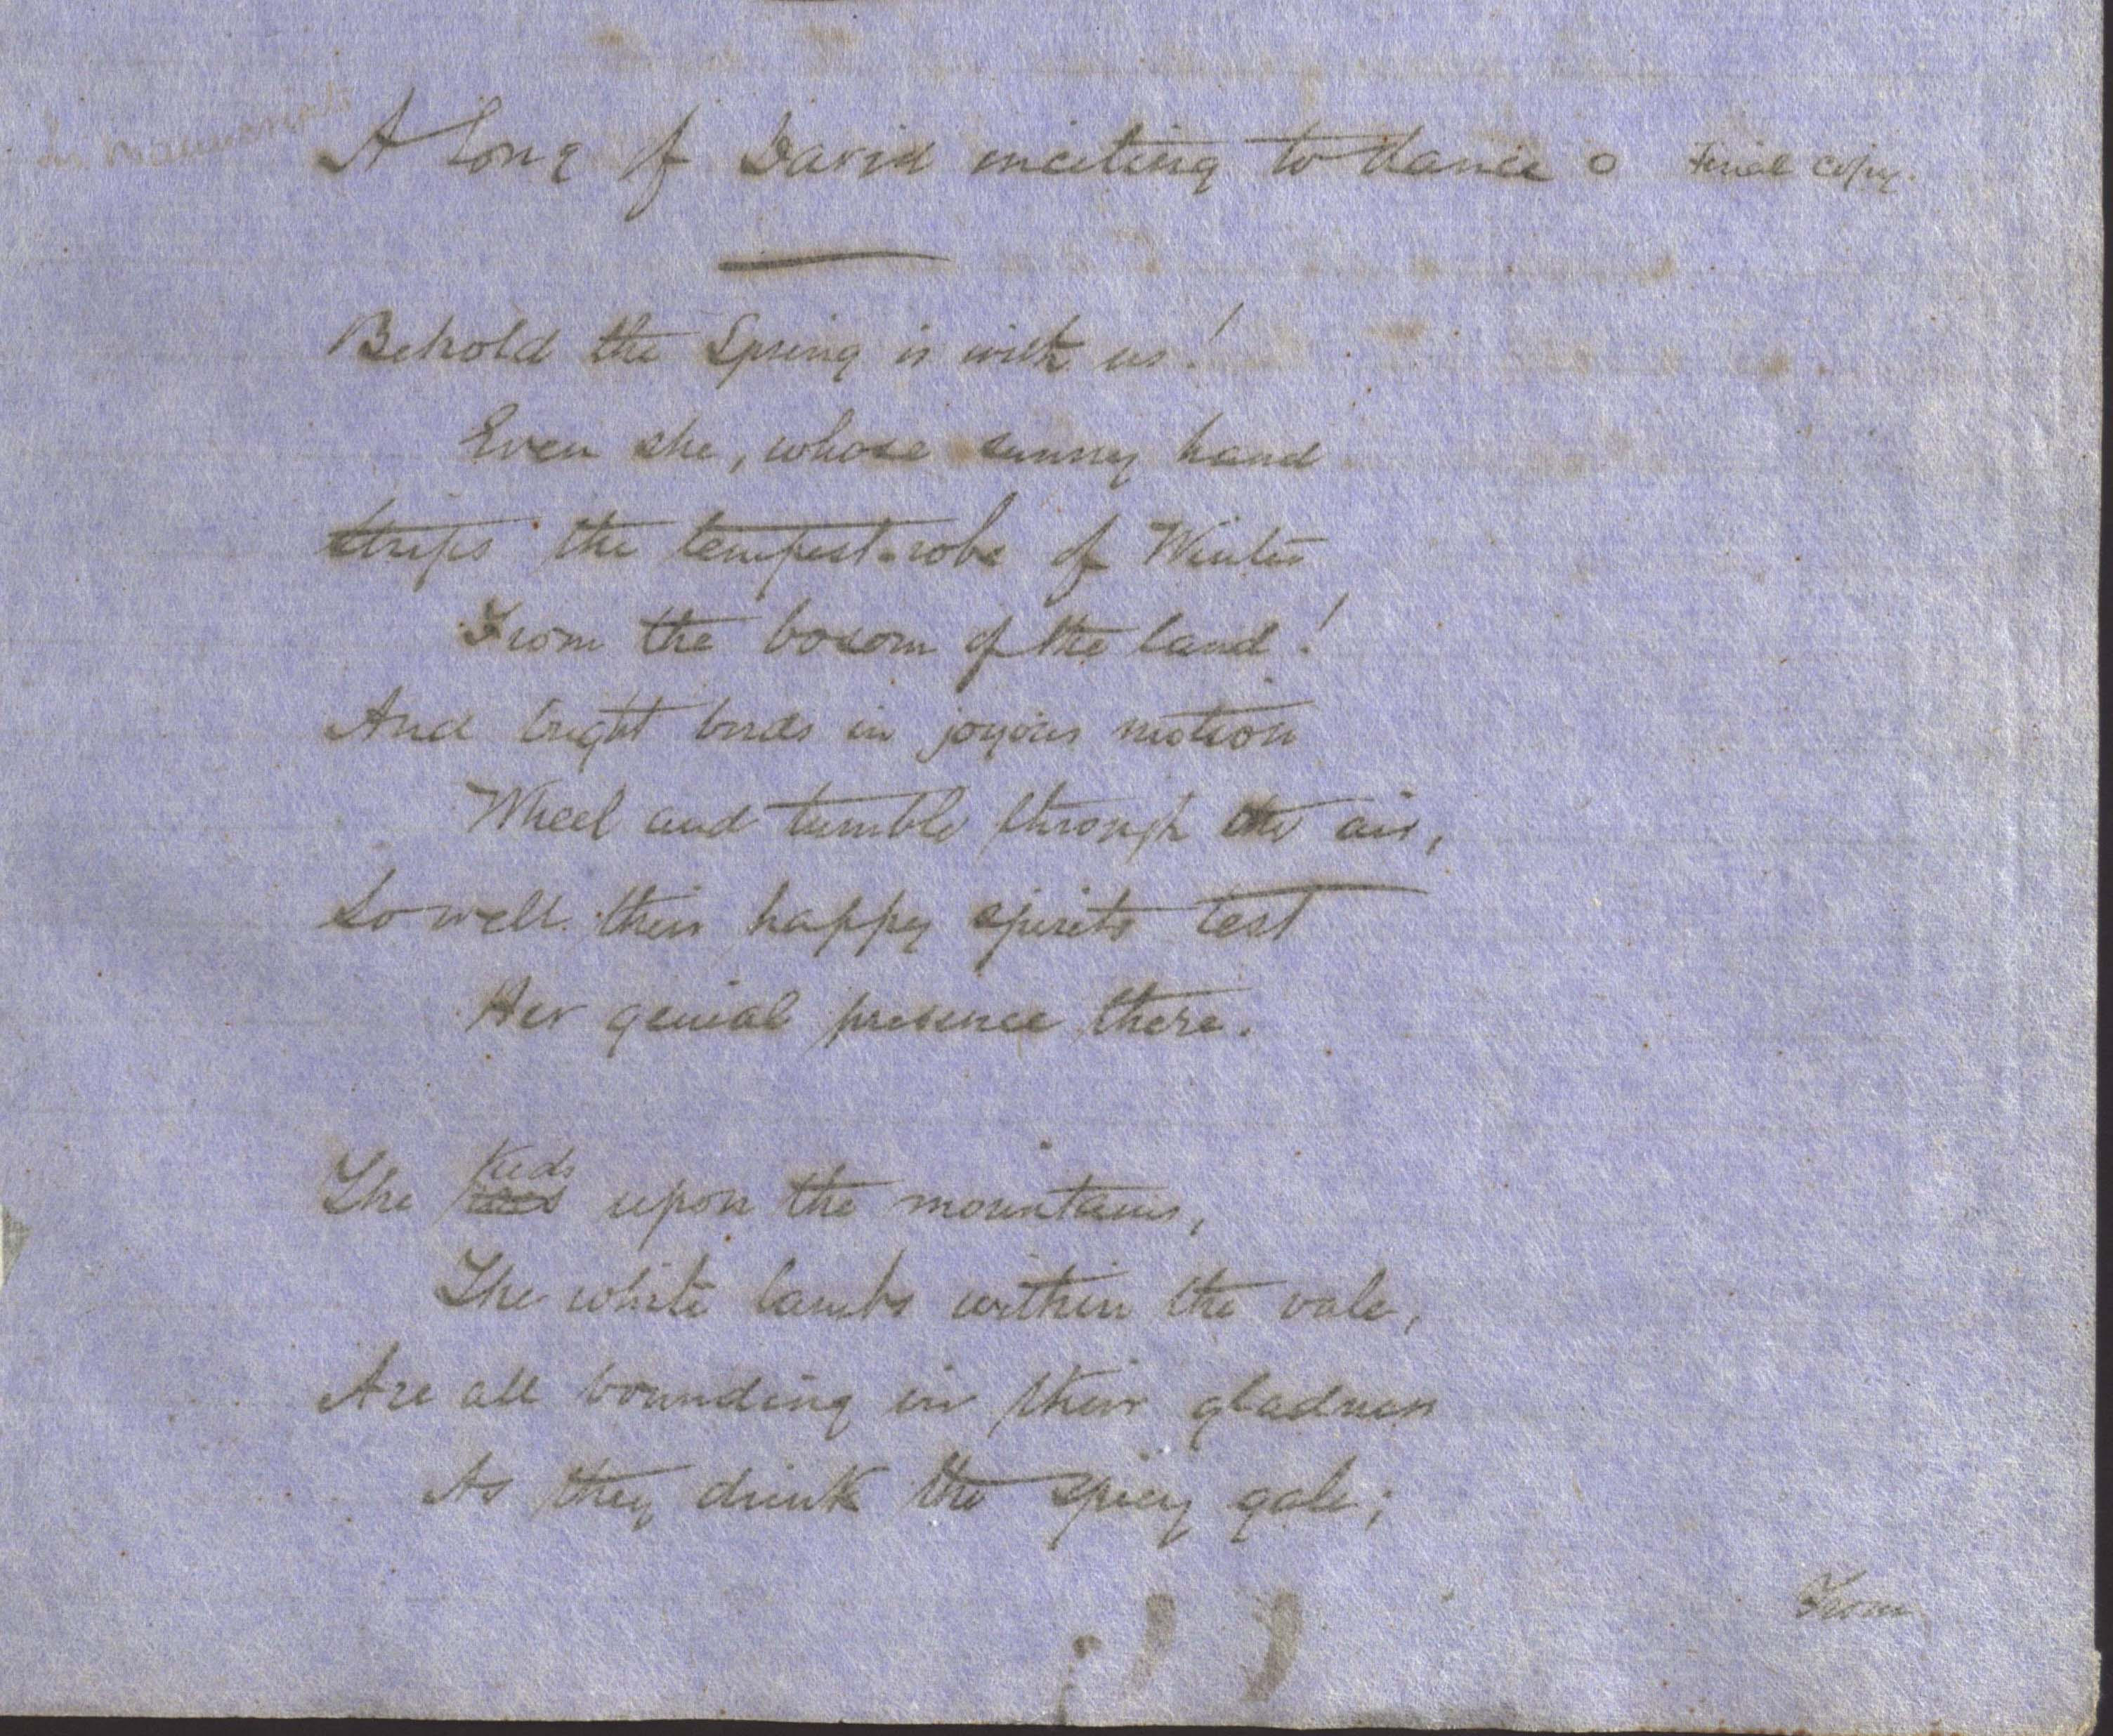 In manuscript
A Song of David inciting to dance o Final copy.
Behold the Spring is with us!
Even she, whose sunny hand
Strips the tempest-robe of Winter
From the bosom of the land!
And bright birds in joyous motion
Wheel and tumble through the air,
So well their happy spirits test
Her genial presence there.
Kids
The upon the mountains,
The white lambs within the vale,
Are all bounding in their gladness
As they drink the spicy gale;
From